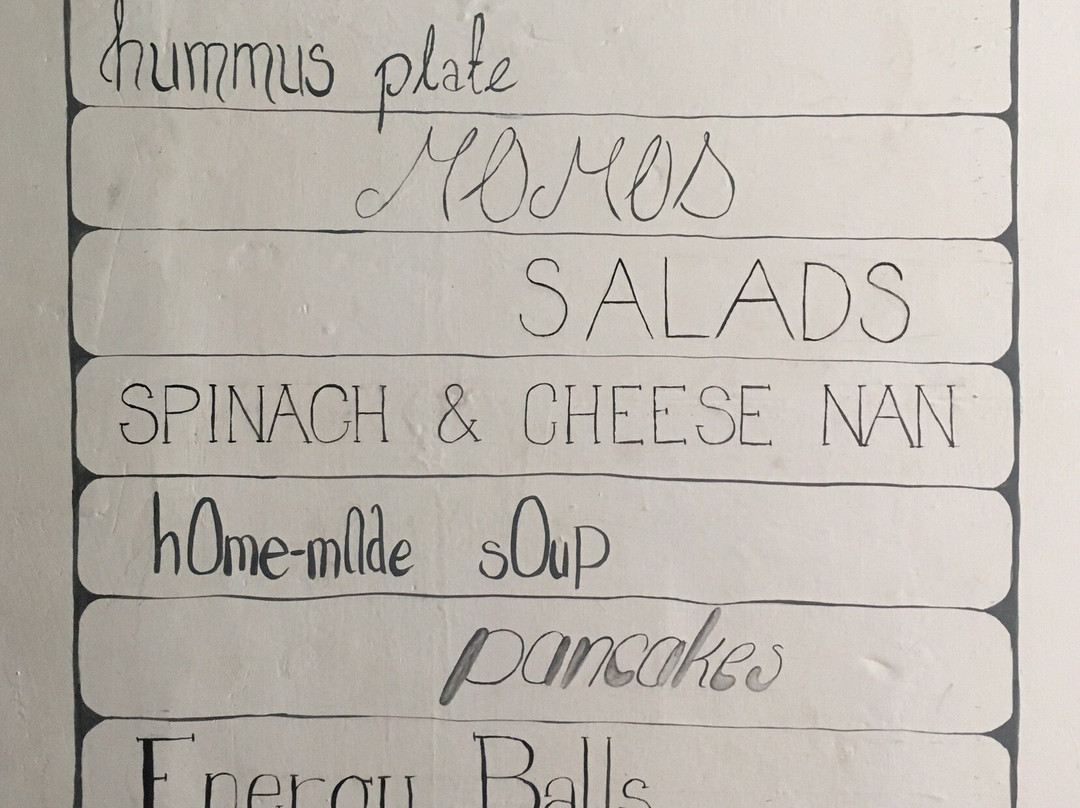 hummus plate
MOMOS
SALADS
SPINACH & CHEESE NAN
hOme-mAde sOup
pancakes
Energy Balls